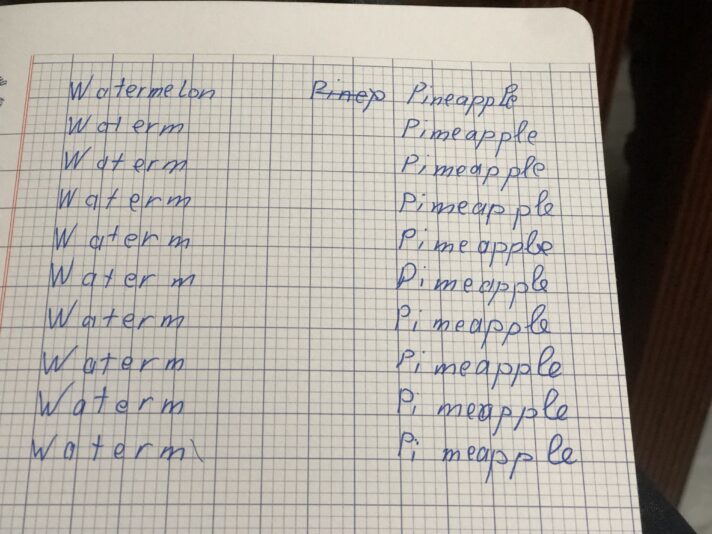 Watermelon Pinep Pineapple
Waterm Pimeapple
Waterm Pimeapple
Waterm Pimeapple
Waterm Pimeapple
Waterm Pimeapple
Waterm Pimeapple
Waterm Pimeapple
Waterm Pimeapple
Waterm Pimeapple